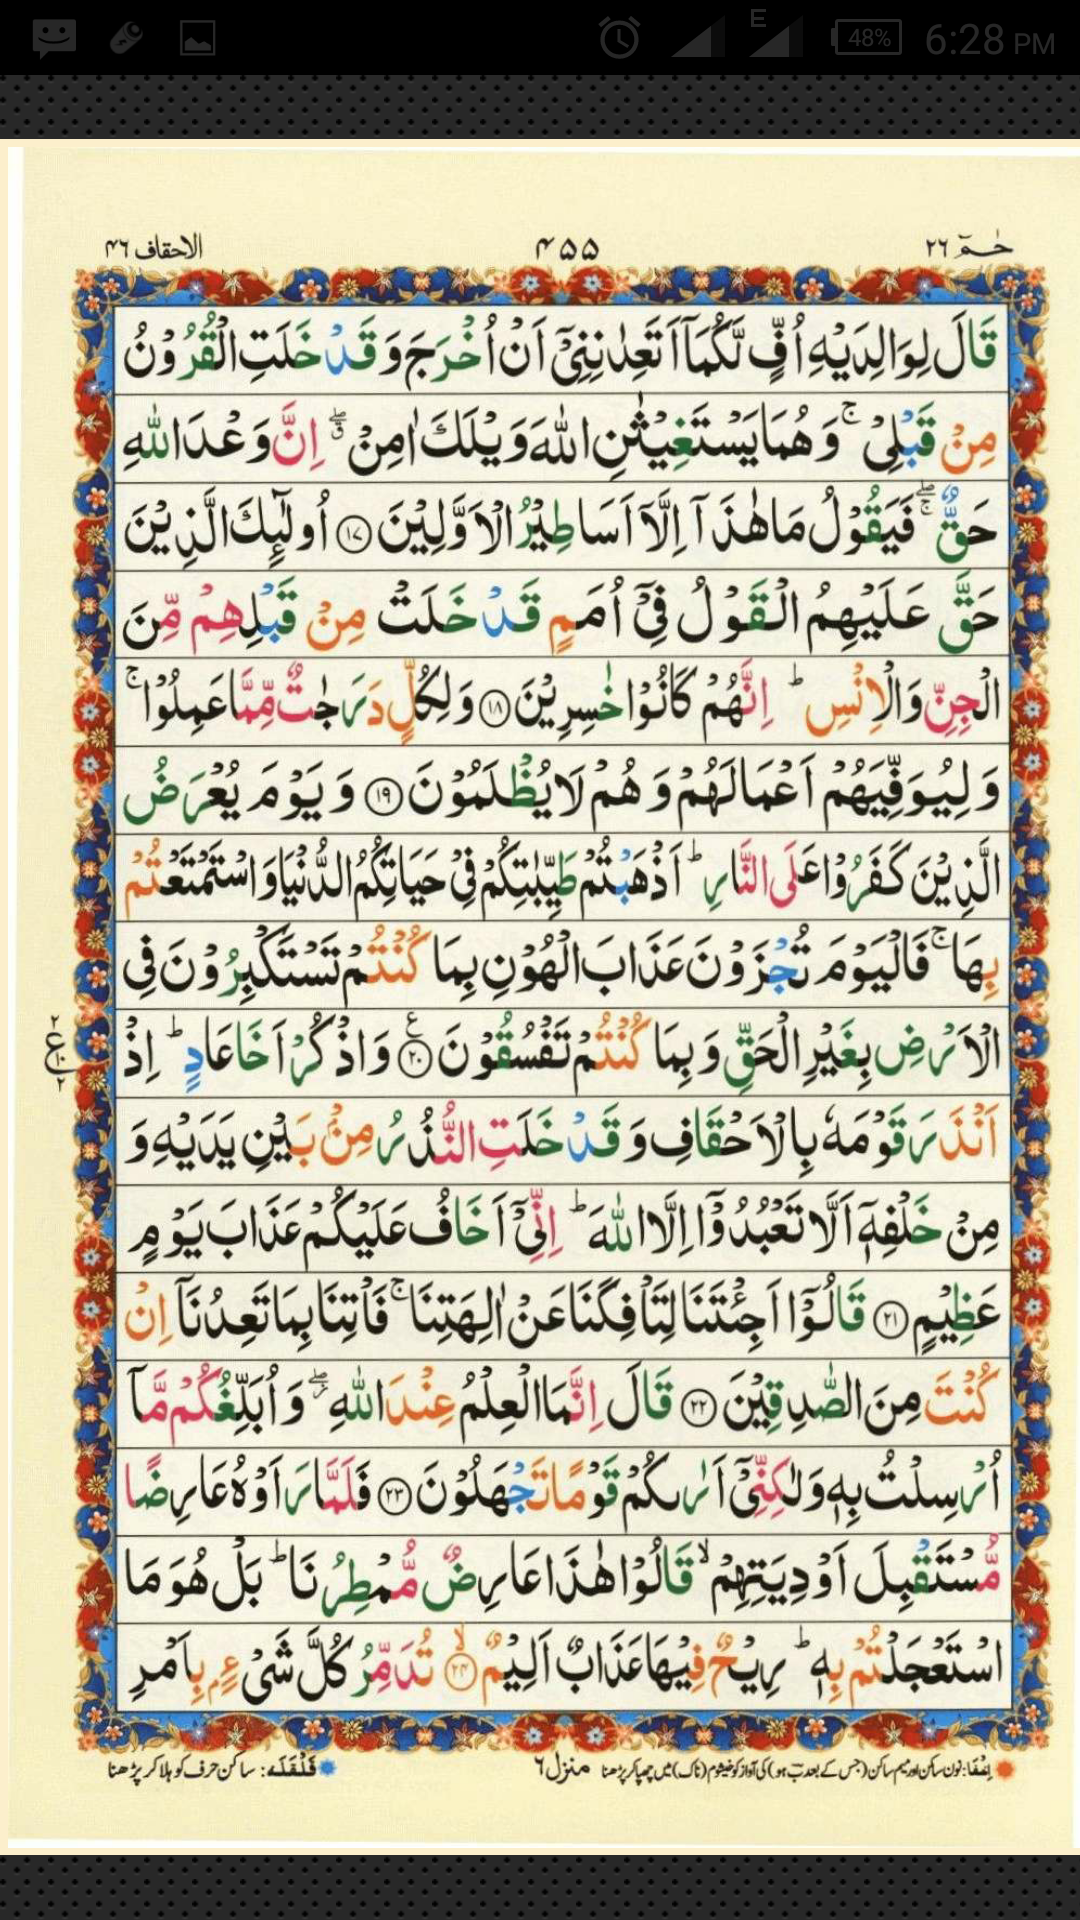 48%
E
6:28 PM
حٰمٓ ٢٦
۴۵۵
الاحقاف ۴٦
قَالَ لِوَالِدَيْهِ اُفٍّ لَّكُمَاۤ اَتَعِدٰنِنِيْۤ اَنْ اُخْرَجَ وَ قَدْ خَلَتِ الْقُرُوْنُ
مِنْ قَبْلِيْ ۚ وَ هُمَا يَسْتَغِيْثٰنِ اللّٰهَ وَيْلَكَ اٰمِنْ ۖۗ اِنَّ وَعْدَ اللّٰهِ
حَقٌّ ۖۚ فَيَقُوْلُ مَا هٰذَاۤ اِلَّاۤ اَسَاطِيْرُ الْاَوَّلِيْنَ ﴿۱۷﴾ اُولٰٓئِكَ الَّذِيْنَ
حَقَّ عَلَيْهِمُ الْقَوْلُ فِيْۤ اُمَمٍ قَدْ خَلَتْ مِنْ قَبْلِهِمْ مِّنَ
الْجِنِّ وَالْاِنْسِ ؕ اِنَّهُمْ كَانُوْا خٰسِرِيْنَ ﴿۱۸﴾ وَلِكُلٍّ دَرَجٰتٌ مِّمَّا عَمِلُوْا ۚ
وَ لِيُوَفِّيَهُمْ اَعْمَالَهُمْ وَ هُمْ لَا يُظْلَمُوْنَ ﴿۱۹﴾ وَ يَوْمَ يُعْرَضُ
الَّذِيْنَ كَفَرُوْا عَلَى النَّارِ ؕ اَذْهَبْتُمْ طَيِّبٰتِكُمْ فِيْ حَيَاتِكُمُ الدُّنْيَا وَ اسْتَمْتَعْتُمْ
بِهَا ۚ فَالْيَوْمَ تُجْزَوْنَ عَذَابَ الْهُوْنِ بِمَا كُنْتُمْ تَسْتَكْبِرُوْنَ فِي
الْاَرْضِ بِغَيْرِ الْحَقِّ وَ بِمَا كُنْتُمْ تَفْسُقُوْنَ ﴿۲۰﴾ وَ اذْكُرْ اَخَا عَادٍ ؕ اِذْ
اَنْذَرَ قَوْمَهٗ بِالْاَحْقَافِ وَ قَدْ خَلَتِ النُّذُرُ مِنْۢ بَيْنِ يَدَيْهِ وَ
مِنْ خَلْفِهٖۤ اَلَّا تَعْبُدُوْۤا اِلَّا اللّٰهَ ؕ اِنِّيْۤ اَخَافُ عَلَيْكُمْ عَذَابَ يَوْمٍ
عَظِيْمٍ ﴿۲۱﴾ قَالُوْۤا اَجِئْتَنَا لِتَاْفِكَنَا عَنْ اٰلِهَتِنَا ۚ فَاْتِنَا بِمَا تَعِدُنَاۤ اِنْ
كُنْتَ مِنَ الصّٰدِقِيْنَ ﴿۲۲﴾ قَالَ اِنَّمَا الْعِلْمُ عِنْدَ اللّٰهِ ۖ وَ اُبَلِّغُكُمْ مَّاۤ
اُرْسِلْتُ بِهٖ وَلٰكِنِّيْۤ اَرٰىكُمْ قَوْمًا تَجْهَلُوْنَ ﴿۲۳﴾ فَلَمَّا رَاَوْهُ عَارِضًا
مُّسْتَقْبِلَ اَوْدِيَتِهِمْ ۙ قَالُوْا هٰذَا عَارِضٌ مُّمْطِرُنَا ؕ بَلْ هُوَ مَا
اسْتَعْجَلْتُمْ بِهٖ ؕ رِيْحٌ فِيْهَا عَذَابٌ اَلِيْمٌ ﴿۲۴﴾ۙ تُدَمِّرُ كُلَّ شَيْءٍۭ بِاَمْرِ
اِخفا: نون ساکن اور میم ساکن (جس کے بعد ب ہو) کی آواز کو خیشوم (ناک) میں چھپا کر پڑھنا
منزل ٦
قَلْقَلَه: ساکن حرف کو ہلا کر پڑھنا